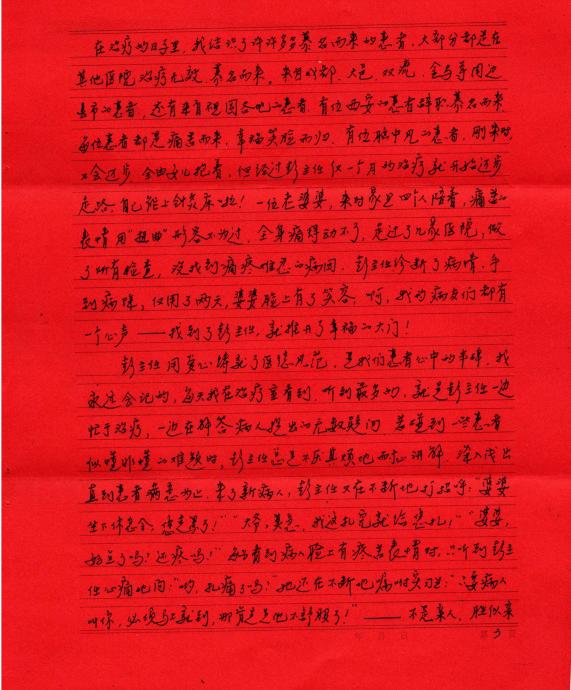 在治疗的日子里，我结识了许许多多慕名而来的患者，大部分都是在
其他医院治疗无效，慕名而来，来自成都、大邑、双流、金马等周边
县市的患者，还有来自祖国各地的患者，有位西安的患者辞职慕名而来，
每位患者都是痛苦而来，幸福笑脸而归。有位脑中风的患者，刚来时
不会迈步，全由女儿抱着，但经过彭主任仅一个月的治疗就开始迈步
走路，自己能上针灸床啦！一位老婆婆，来时家里四个人陪着，痛苦的
表情用"扭曲"形容不为过，全身痛得动不了，走过了几家医院，做
了所有检查，没找到痛疼难忍的病因，彭主任诊断了病情，手
到病除，仅用了两天，婆婆脸上有了笑容。啊，我的病友们都有
一个心声——找到了彭主任，就推开了幸福的大门！
彭主任用爱心铸就了医德风范，是我们患者心中的丰碑，我
永远会记的，每天我在治疗室看到、听到最多的，就是彭主任一边
忙于治疗，一边在解答病人提出的无数疑问，若碰到一些患者
似懂非懂的难题时，彭主任总是不厌其烦地再和讲解，深入浅出
直到患者满意为止，来了新病人，彭主任又在不断地打招呼："婆婆
坐下休息会，您走累了！""大爷，莫急，我这扎完就给您扎！""婆婆，
好些了吗？还疼吗？"每当看到病人脸上有疼苦表情时，只听到彭主
任心痛地问："哟，扎痛了吗？"他还在不断地嘱咐实习生："只要病人
叫你，必须马上就到，那肯定是他不舒服了！"——不是亲人，胜似亲
年 月 日 第 3 页